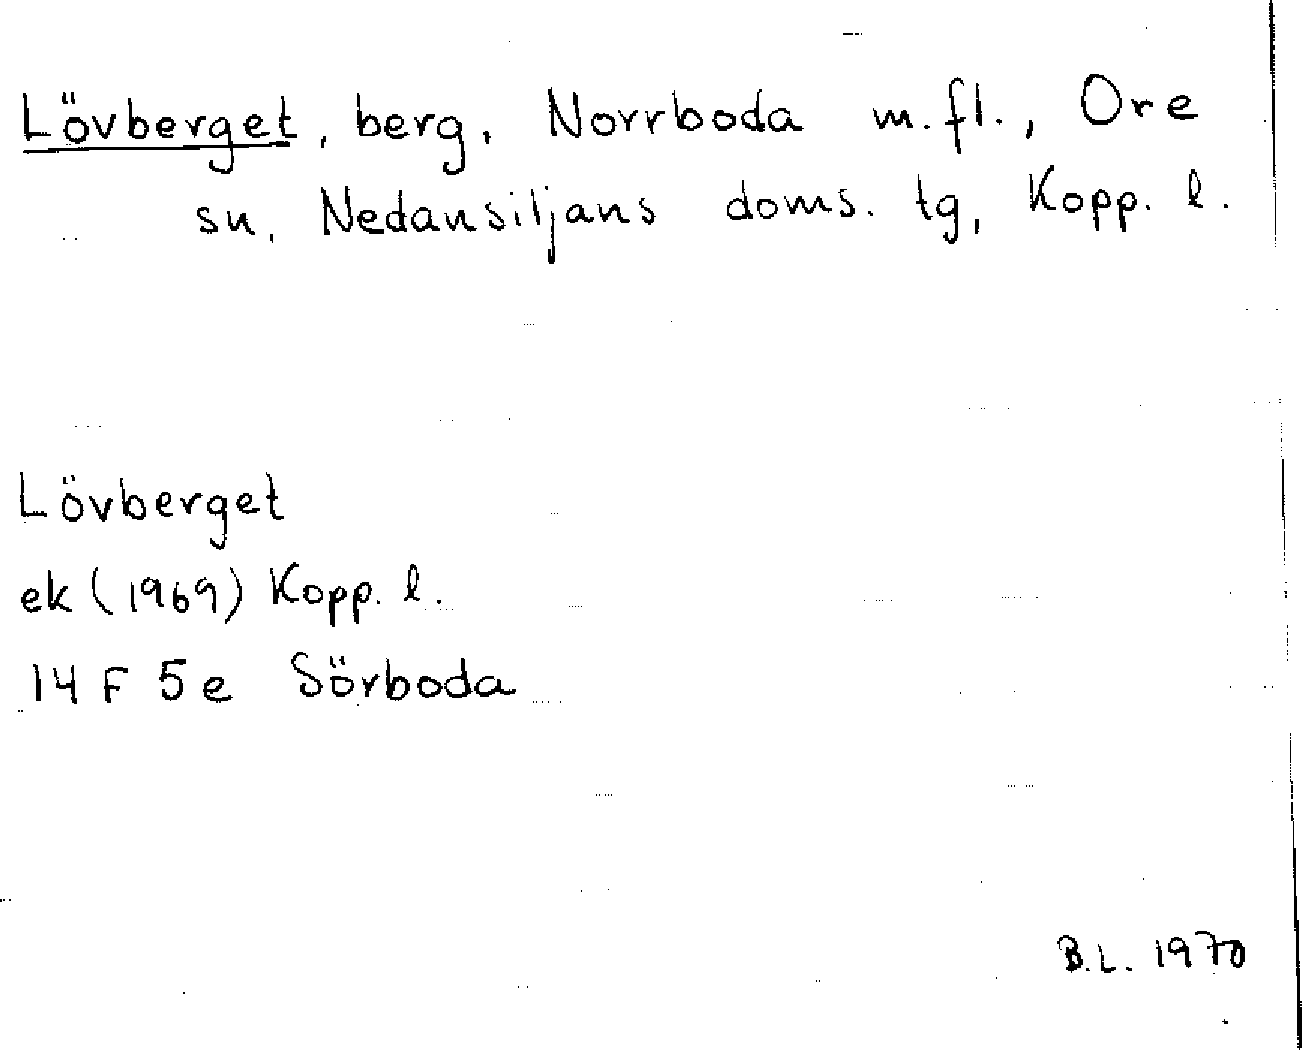 Lövberget, berg, Norrboda m.fl., Ore
sn, Nedansiljans doms. tg, Kopp. l.
Lövberget
ek (1969) Kopp. l.
14 F 5e Sörboda
B.L. 1970